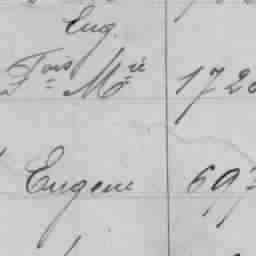 Eug.
Fois Mie 172
Eugene 697